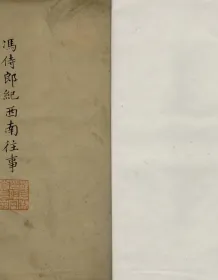 馮侍郎紀西南往事